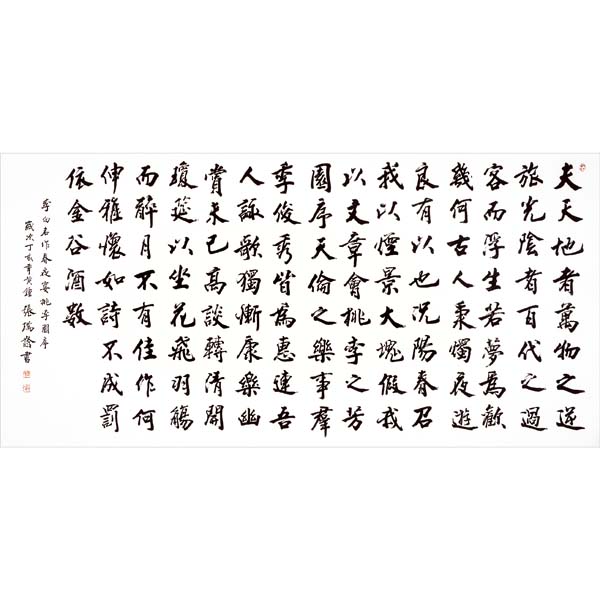 夫天地者萬物之逆
旅光陰者百代之過
客而浮生若夢為歡
幾何古人秉燭夜遊
良有以也況陽春召
我以煙景大塊假我
以文章會桃李之芳
園序天倫之樂事羣
季俊秀皆為惠連吾
人詠歌獨慚康樂幽
賞未已高談轉清開
瓊筵以坐花飛羽觴
而醉月不有佳作何
伸雅懷如詩不成罰
依金谷酒數
李白名作春夜宴桃李園序
歲次丁亥年黃鐘張瑞書